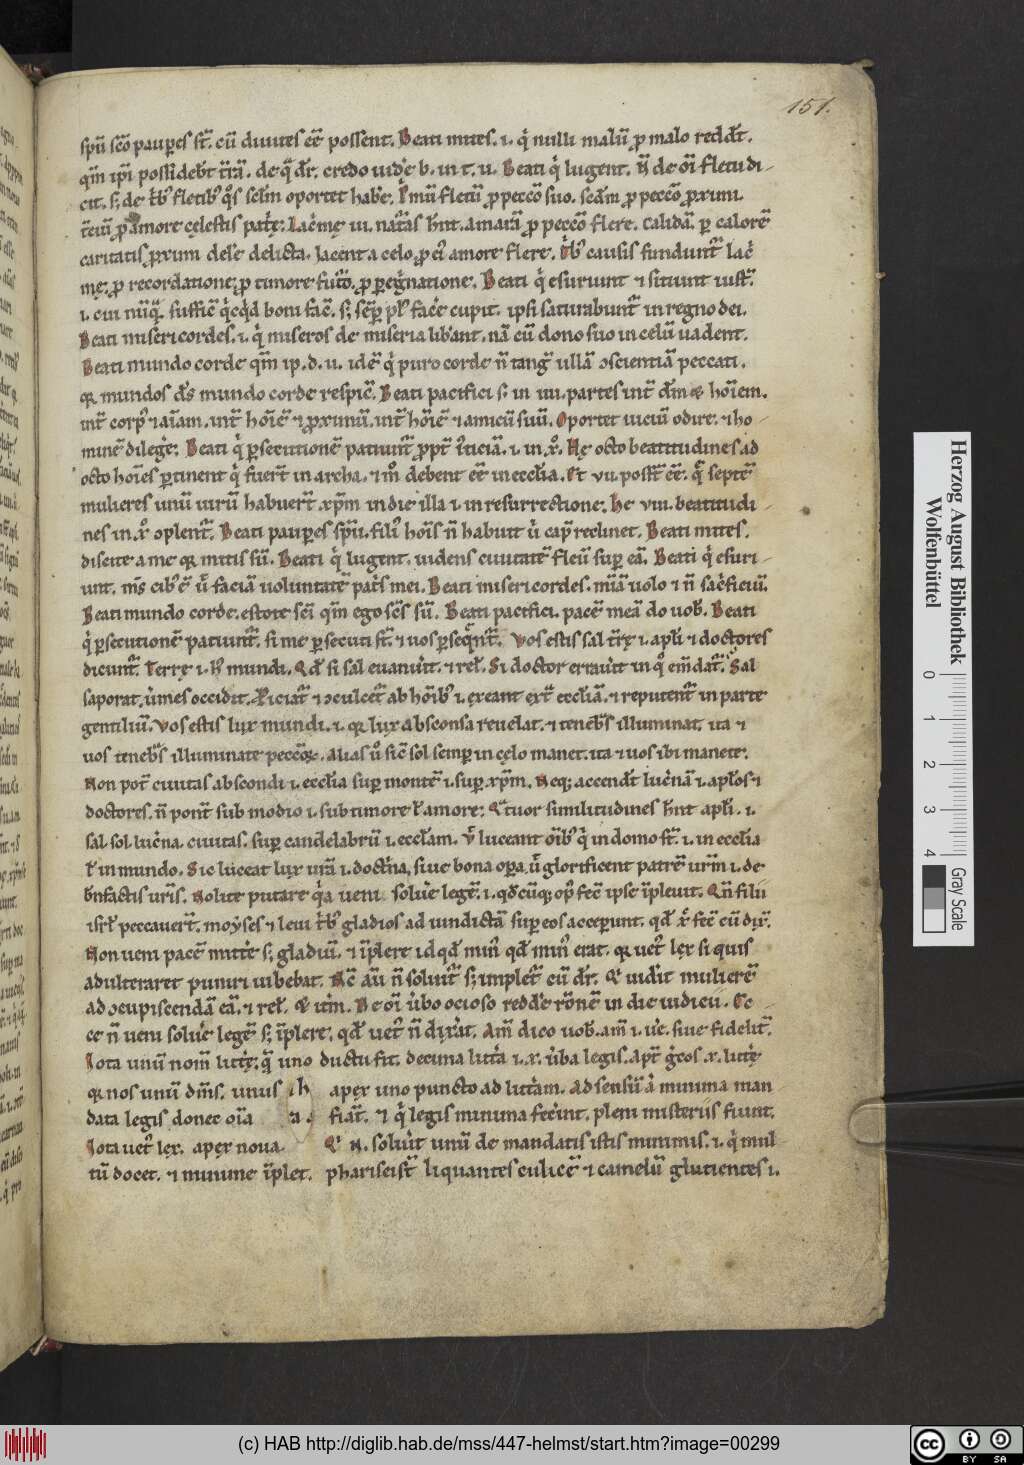 151.
spū scō paupes st̄. cū diuites eē possent. Beati mites. i. q̇ nulli malū ꝓ malo reddt̄.
qm̄ ip̄i possidebt̄ t̄rā. de q̄ dr̄. credo uidē b. in t. u. Beati q̇ lugent. n̄ de oī fletu di-
cit. s; de t̄bꝰ fletibꝰ qͦs selm̄ oportet habe. Pmū fletū ꝓ peccō suo. scdm̄ ꝓ peccō ꝓximi.
t̄ciū ꝓ amore cęlestis patrię. Lac̄mę iii. nat̄as hn̄t. amarā ꝓ peccō flere. calidā. ꝑ calorē
caritatis ꝓximi delē delicta. Iacent a celo. ꝓ ei amore flere. causis fundunt̄ lac̄
mę. ꝓ recordatione. ꝓ timore futō. ꝓ ꝑeg̓natione. Beati q̇ esuriunt ⁊ sitiunt iust̄.
i. cui nūq̄. suffic̄ q̇cq̇d boni fac̄. s; sēꝑ plꝰ fac̄e cupit. ipsi saturabunt̄ in regno dei.
Beati misericordes. i. q̇ miseros de miseria libant. nā cū dono suo in celū uadent.
Beati mundo corde qm̄ ip. d. u. idē q̇ puro corde n̄ tangt̄ ullā ↄscientiā peccati.
qꝛ mundos ds̄ mundo corde respic̄. Beati pacifici s. in iiii. partes int̄ dm̄ ⁊ hoiem.
int̄ corpꝰ ⁊ aīam. int̄ hoīē ⁊ ꝓximū. int̄ hoīē ⁊ amicū suū. Oportet uiciū odire. ⁊ ho-
minē dilegē. Beati q̇ ꝑsecutionē patiunt̄ ꝓpt̄ iⁱticiā. i. in xͦ. Hę octo beatitudines ad
octo hoīes ꝑtinent q̇ fuert̄ in archa. ⁊ m̊ debent eē in eccl̄ia. Et vii. post̄ eē. q̄ septē
mulieres unū uirū habuert̄. xp̄m in die illa i. in resurrectione. He viii. beatitudi-
nes in xͦ ↄplent̄. Beati paupes spū. filiꝰ hoīs n̄ habuit u̇ capꝰ reclinet. Beati mites.
discite a me qꝛ mitis sū. Beati q̇ lugent. uidens ciuitatē fleuit suꝑ eā. Beati q̇ esuri-
unt. ms̄ cibꝰ ē ut̄ faciā uoluntatē pat̄s mei. Beati misericordes. mīā uolo ⁊ n̄ sac̄ficiū.
Beati mundo corde. estote sc̄i qm̄ ego sc̄s sū. Beati pacifici. pacē meā do uob̄. Beati
q̇ ꝑsecutionē patiunt̄. si me ꝑsecuti st̄. ⁊ uos ꝑseq̄nt̄. Vos estis sal t̄rę i. apl̄i ⁊ doctores
dicunt̄. Terre i. hꝰ mundi. Qd̄ si sal euanuit. ⁊ rel̄. Si doctor erraūit in qͦ em̄dat̄. Sal
saporat. u̇mes occidit. Piciat̄ ⁊ ↄculcet̄ ab hoībꝰ i. exeant ext̄ eccl̄iā. ⁊ reputent̄ in parte
gentiliū. Vos estis lux mundi. i. qꝛ lux absconsa reuelat. ⁊ tenebs̄ illuminat. ita ⁊
uos tenebs̄ illuminate peccōꝝ. alias u̇ sic̄ sol semꝑ in cęlo manet. ita ⁊ uos ibi manete.
Non pot̄ ciuitas abscondi i. eccl̄ia suꝑ montē i. suꝑ xp̄m. Neq; accendt̄ luc̄nā i. apl̄os ⁊
doctores. n̄ pont̄ sub modio i. sub timore l̄ amore. Qͣtuor similitudines hn̄t apl̄i. i.
sal. sol. luc̄na. ciuitas. suꝑ candelabrū i. eccl̄am. Vt̄ luceant oībꝰ q̇ in domo st̄. i. in eccl̄ia
l̄ in mundo. Sic luceat lux urā i. doct̄na. siue bona oꝑa. ut̄ glorificent patrē urm̄ i. de
bn̄factis uris̄. Nolite putare q̇a ueni soluē legē. i. qd̄cūq; opꝰ fec̄ ipse īpleuit. Qn̄ filii
isrl̄ peccauert̄. moyses ⁊ leui t̄bꝰ gladios ad uindictā suꝑ eos acceꝑunt. qd̄ x̄ fec̄ cū dix̄.
Non ueni pacē mittē s; gladiū. ⁊ īplere id qd̄ minꝰ qd̄ minꝰ erat. qꝛ uetꝰ lex si quis
adulteraret puniri iubebat. Nc̄ aū n̄ soluit̄ s; implet̄ cū dr̄. Qͥ uidit mulierē
ad ↄcupiscendā eā. ⁊ rel̄. Et it̄m. De oī u̇bo ocioso reddē rōnē in die iudicii. Ec-
ce n̄ ueni soluē legē s; īplere. qd̄ uetꝰ n̄ dixit. Am̄ dico uob̄. am̄ i. ue̓. siue fidelit̄.
Iota unū nom̄ litt̄ę. q̄ uno ductu fit. decima litt̄a i. x. u̇ba legis. apt̄ g̓cos. x. litt̄ę
qꝛ nos unū dm̄s. unus ih apex uno puncto ad litt̄am. ad sensū a minima man
data legis donec oīa a. fiat̄. ⁊ q̇ legis minima fec̄int. pleni misteriis fiunt.
Iota uetꝰ lex. apex noua Qͥ ⁊ N. soluit unū de mandatis istis minimis. i. q̇ mul
tū docet. ⁊ minime īplet. phariseist̄ liquantes culicē ⁊ camelū glutientes i.
Herzog August Bibliothek
Wolfenbüttel
0 1 2 3 4
Gray Scale
(c) HAB http://diglib.hab.de/mss/447-helmst/start.htm?image=00299
cc BY SA